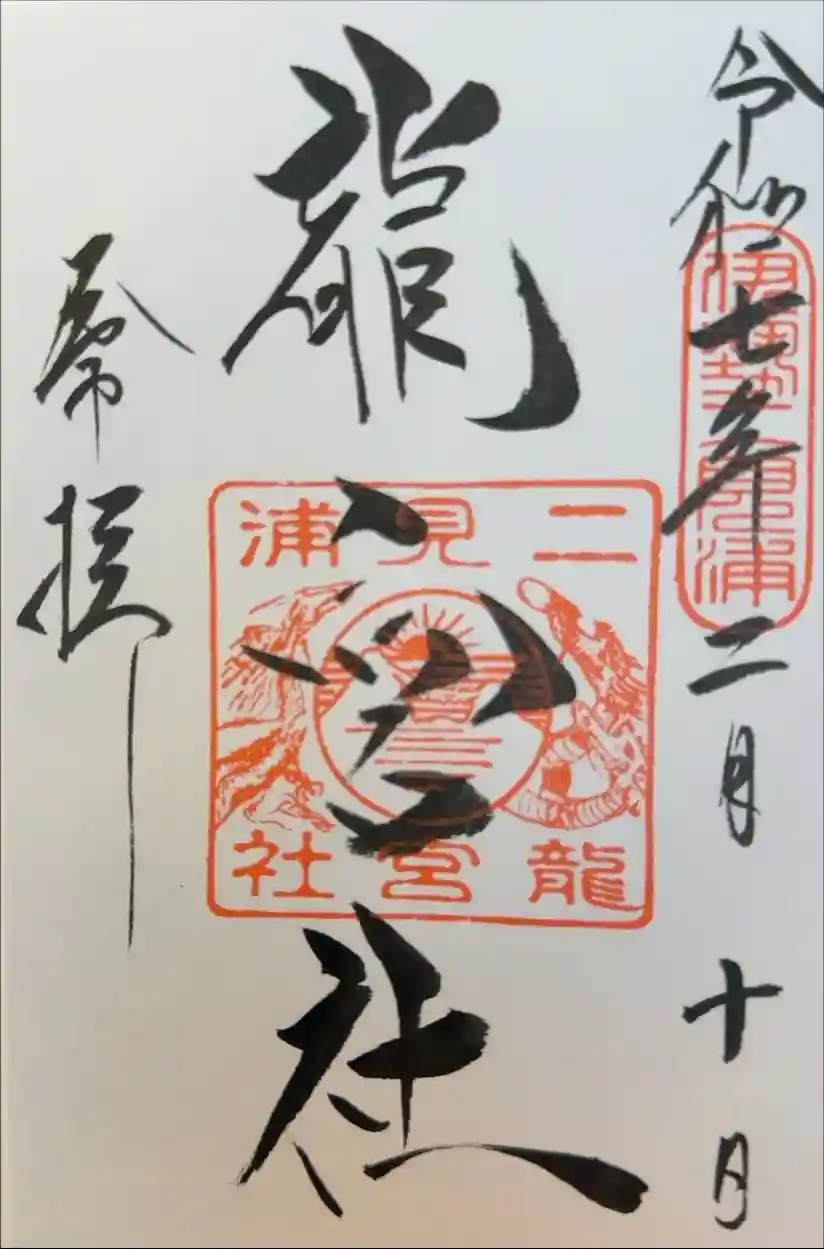 令和七年二月十日
伊勢二見浦
龍宮社
二見浦
龍宮社
奉拝